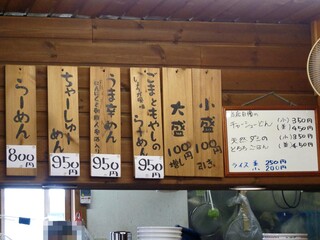 らーめん
800円
ちゃーしゅーめん
950円
うま辛めん
950円
ごまともやしの
らーめん
950円
大盛
100円増し
小盛
100円引き
チャーシューどん (小) 350円
(並) 450円
天然ダシの (小) 350円
とろろごはん (並) 450円
ライス 並 250円
小 200円